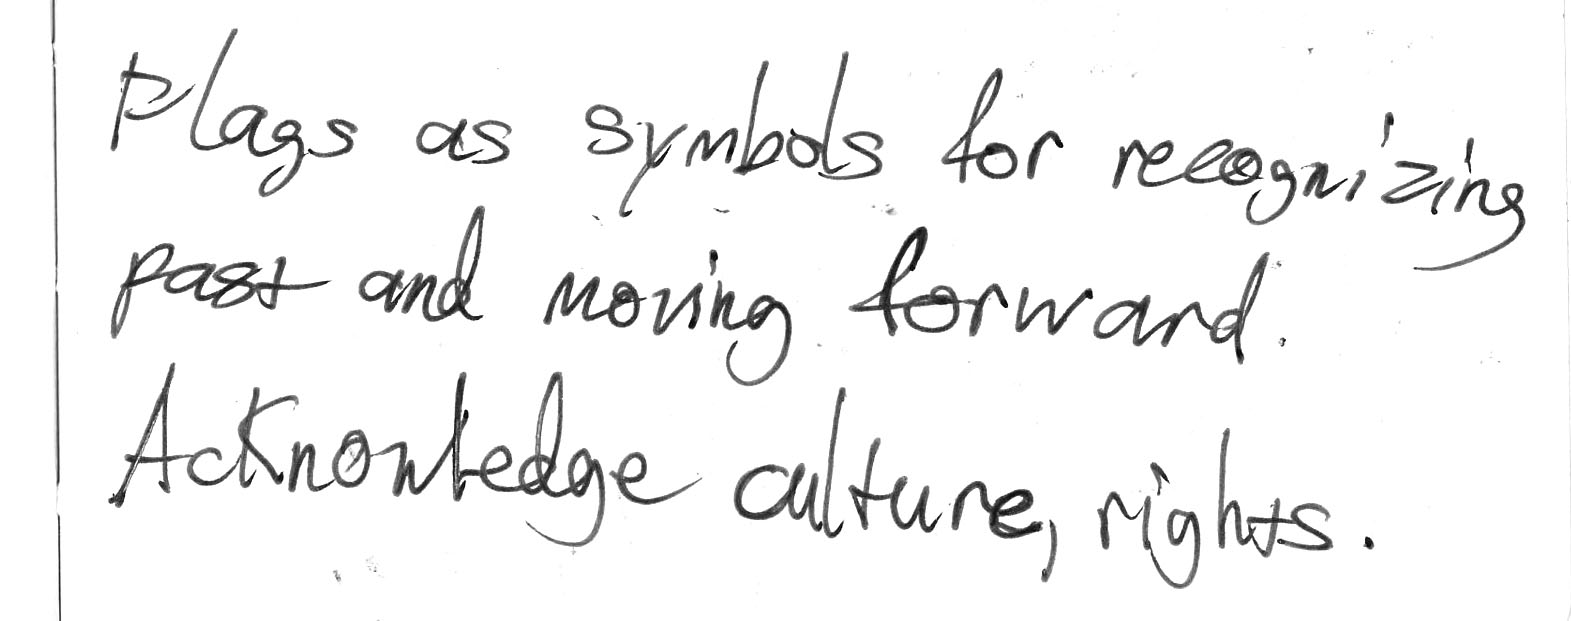 Flags as symbols for recognizing
past and moving forward.
Acknowledge culture, rights.